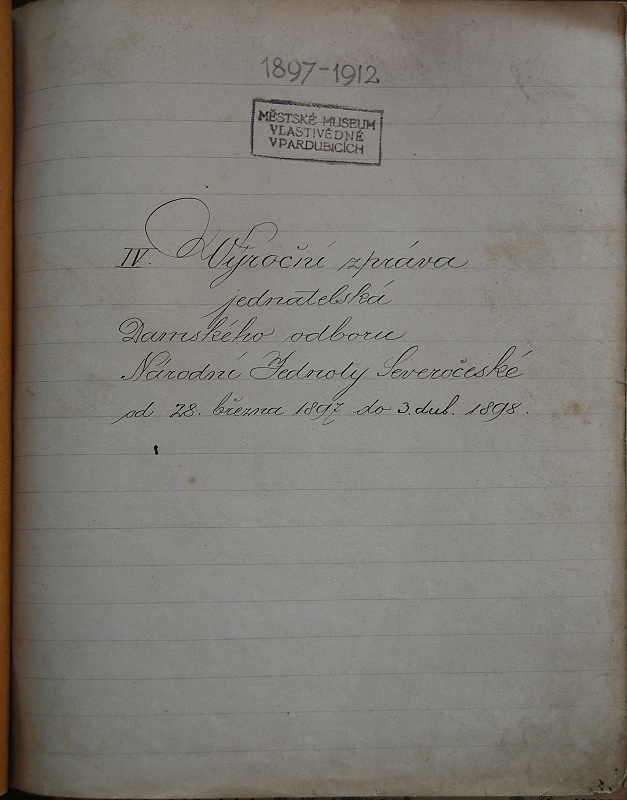 1897-1912
MĚSTSKÉ MUSEUM
VLASTIVĚDNÉ
V PARDUBICÍCH
IV. Výroční zpráva
jednatelská
Damského odboru
Národní Jednoty Severočeské
od 28. března 1897 do 3. dub. 1898.